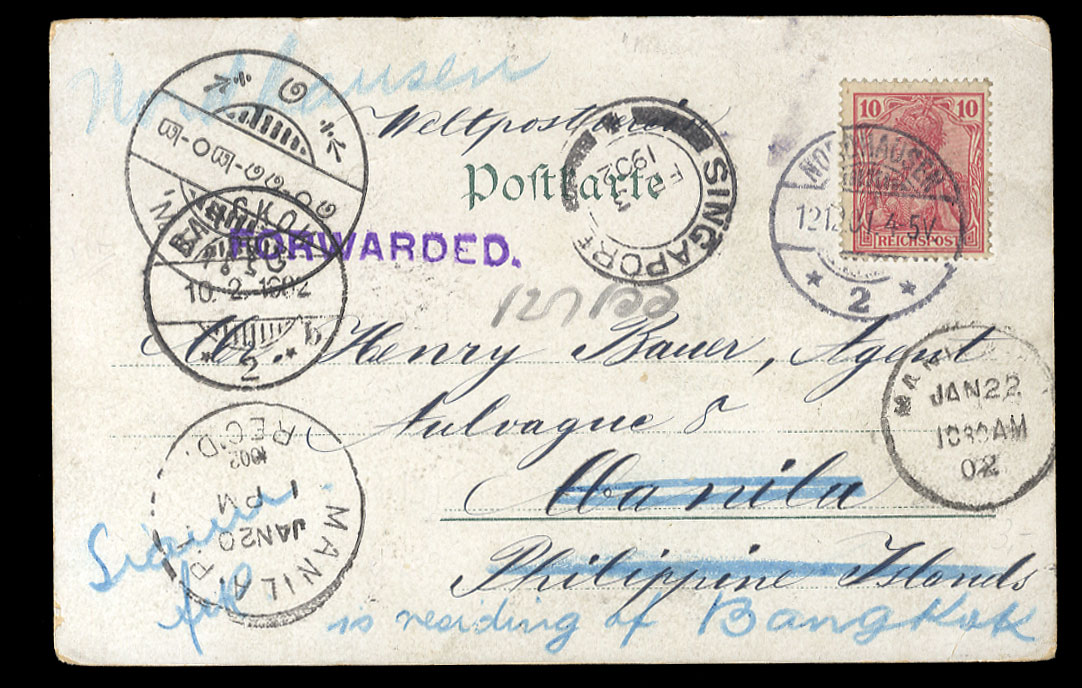 Nordhausen
Weltpostverein
Postkarte
10 10
REICHSPOST
NORDHAUSEN
12 12 01 4-5V
* 2 *
SINGAPORE
FE 3
1902
BANGKOK
10. 2. 1902
* 2 * b
FORWARDED.
127
Mr. Henry Bauer, Agent
8
Manila
Philippine Islands
MANILA
JAN 22
10 30 AM
02
MANILA P.I.
JAN 20
1 PM
1902
REC'D.
Siam
is residing at Bangkok